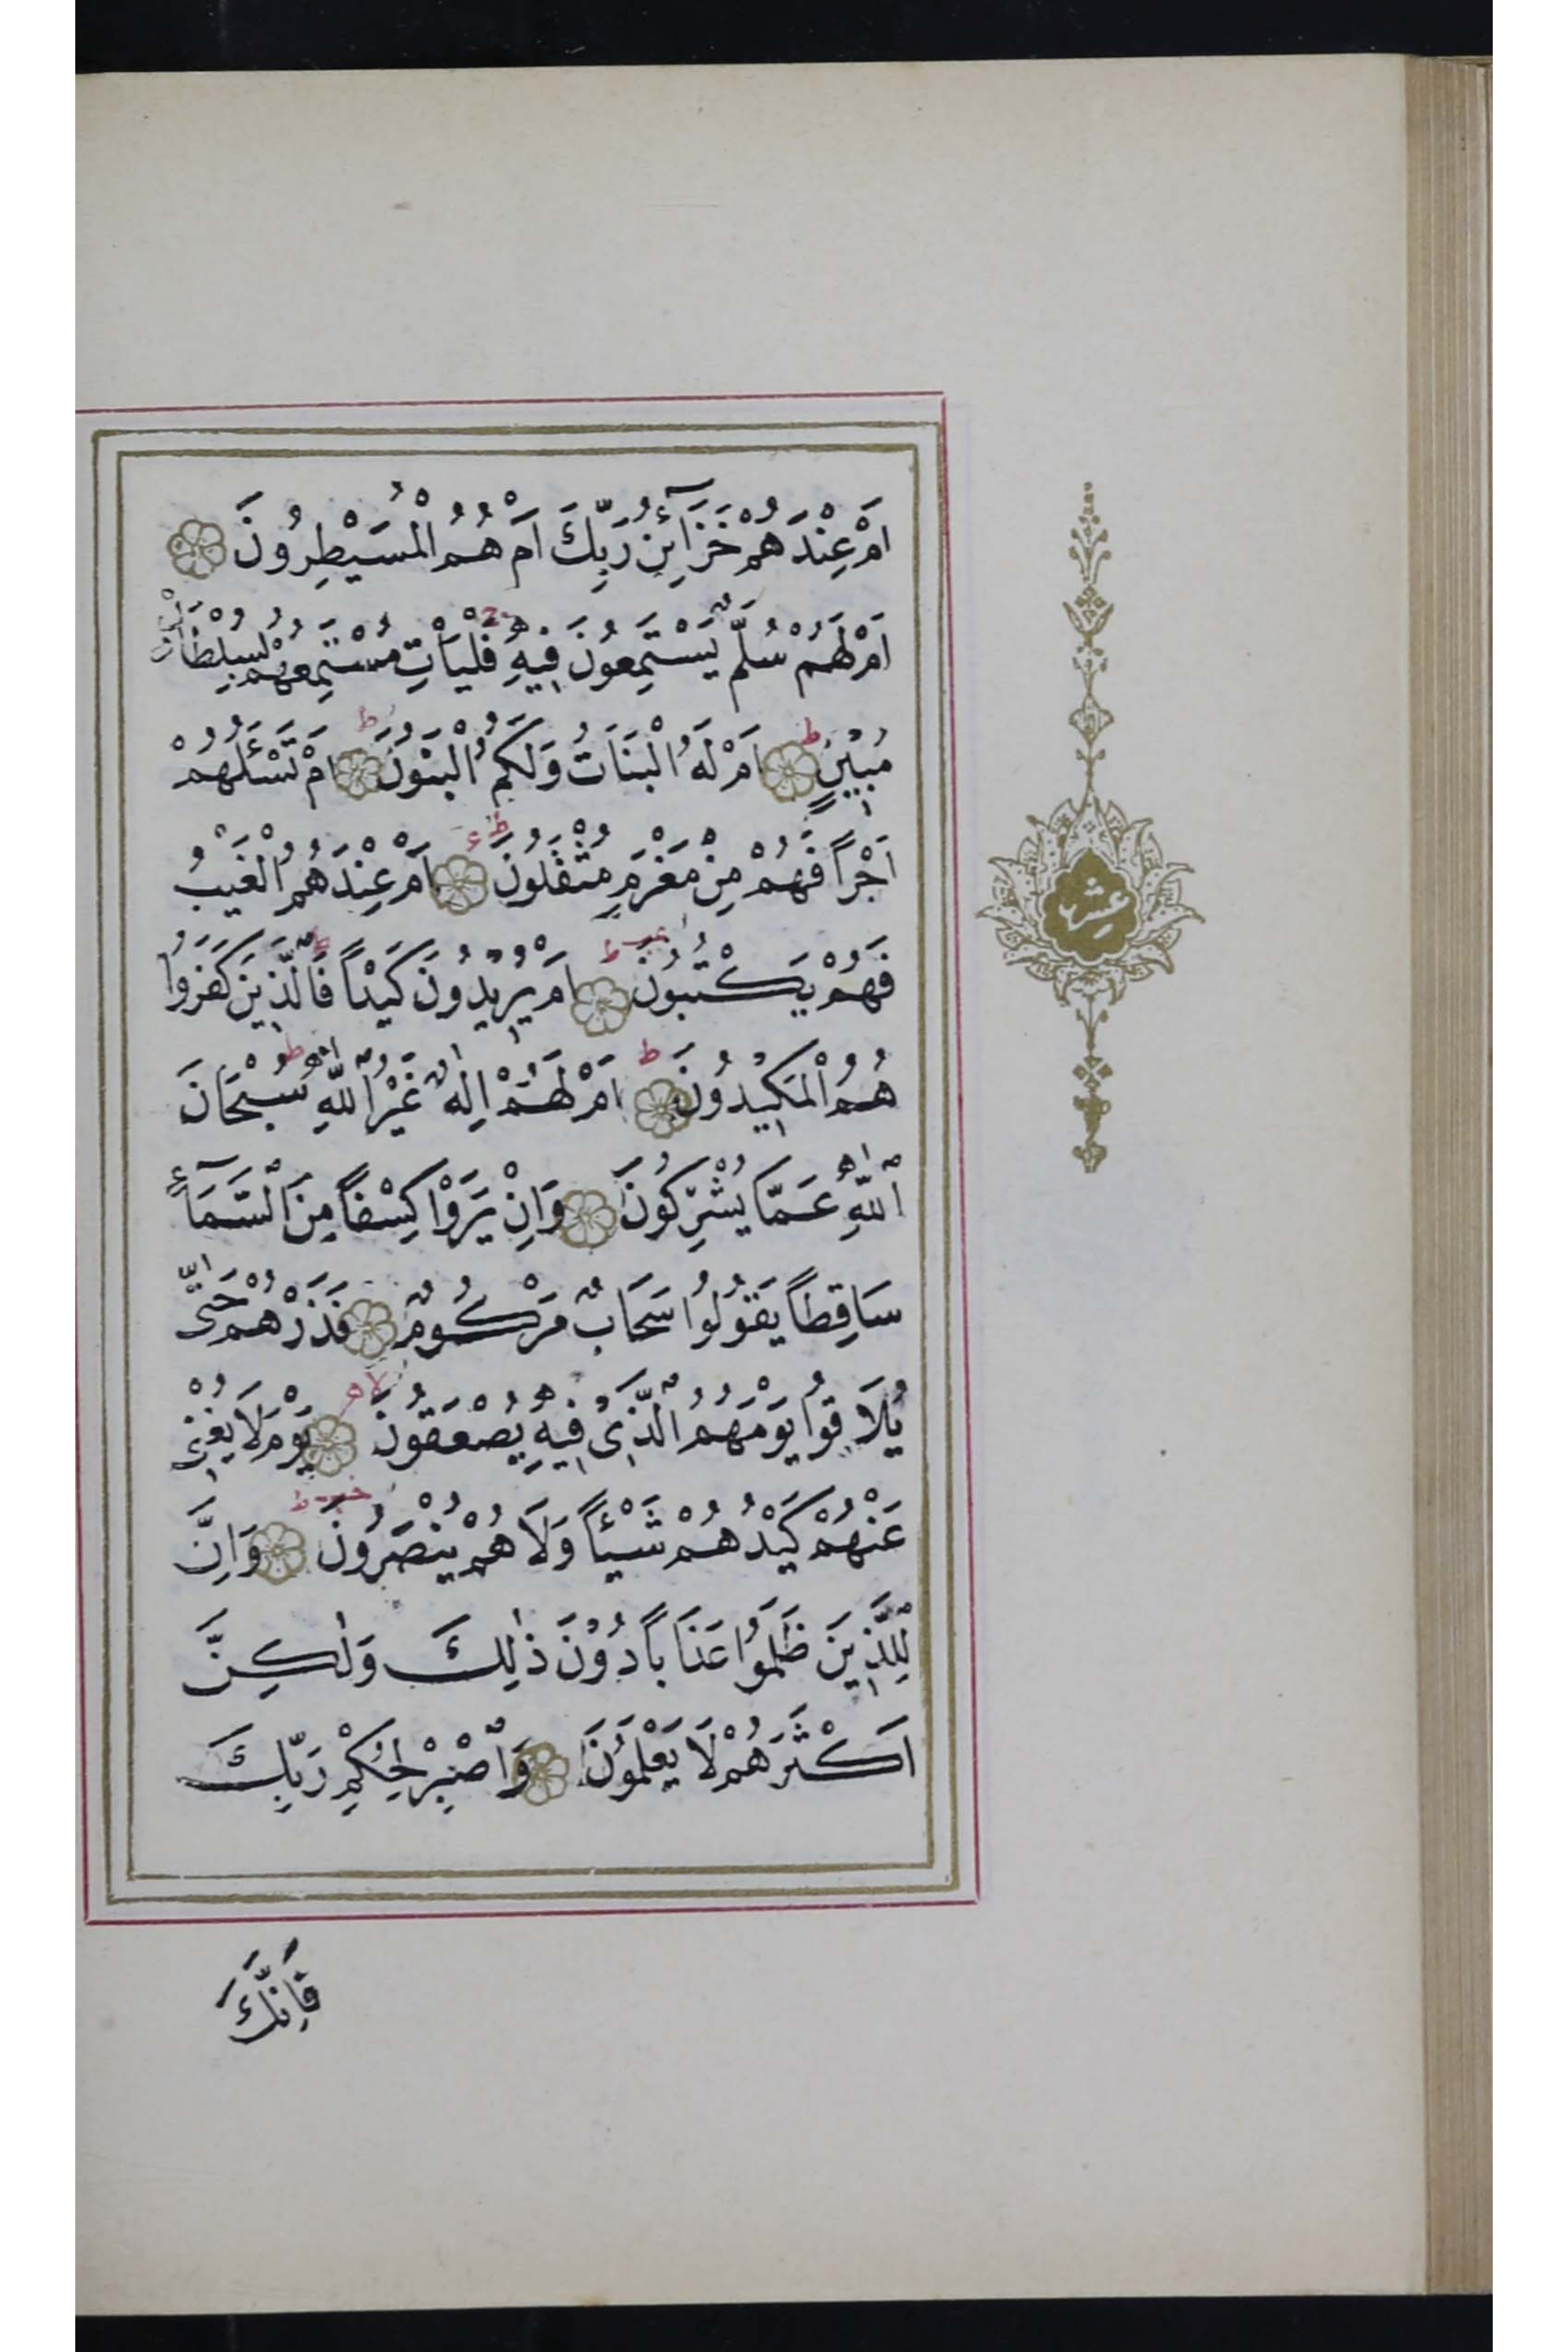 اَمْ عِنْدَهُمْ خَزَآئِنُ رَبِّكَ اَمْ هُمُ الْمُسَيْطِرُونَ
اَمْ لَهُمْ سُلَّمٌ يَسْتَمِعُونَ فِيهِ فَلْيَأْتِ مُسْتَمِعُهُمْ بِسُلْطَانٍ
مُبِينٍ اَمْ لَهُ الْبَنَاتُ وَلَكُمُ الْبَنُونَ اَمْ تَسْـَٔلُهُمْ
اَجْرًا فَهُمْ مِنْ مَغْرَمٍ مُثْقَلُونَ اَمْ عِنْدَهُمُ الْغَيْبُ
فَهُمْ يَكْتُبُونَ اَمْ يُرِيدُونَ كَيْدًا فَالَّذِينَ كَفَرُوا
هُمُ الْمَكِيدُونَ اَمْ لَهُمْ اِلٰهٌ غَيْرُ اللّٰهِ سُبْحَانَ
اللّٰهِ عَمَّا يُشْرِكُونَ وَاِنْ يَرَوْا كِسْفًا مِنَ السَّمَآءِ
سَاقِطًا يَقُولُوا سَحَابٌ مَرْكُومٌ فَذَرْهُمْ حَتّٰى
يُلَاقُوا يَوْمَهُمُ الَّذِى فِيهِ يُصْعَقُونَ يَوْمَ لَا يُغْنِى
عَنْهُمْ كَيْدُهُمْ شَيْـًٔا وَلَا هُمْ يُنْصَرُونَ وَاِنَّ
لِلَّذِينَ ظَلَمُوا عَذَابًا دُونَ ذٰلِكَ وَلٰكِنَّ
اَكْثَرَهُمْ لَا يَعْلَمُونَ وَاصْبِرْ لِحُكْمِ رَبِّكَ
فَاِنَّكَ
عشر